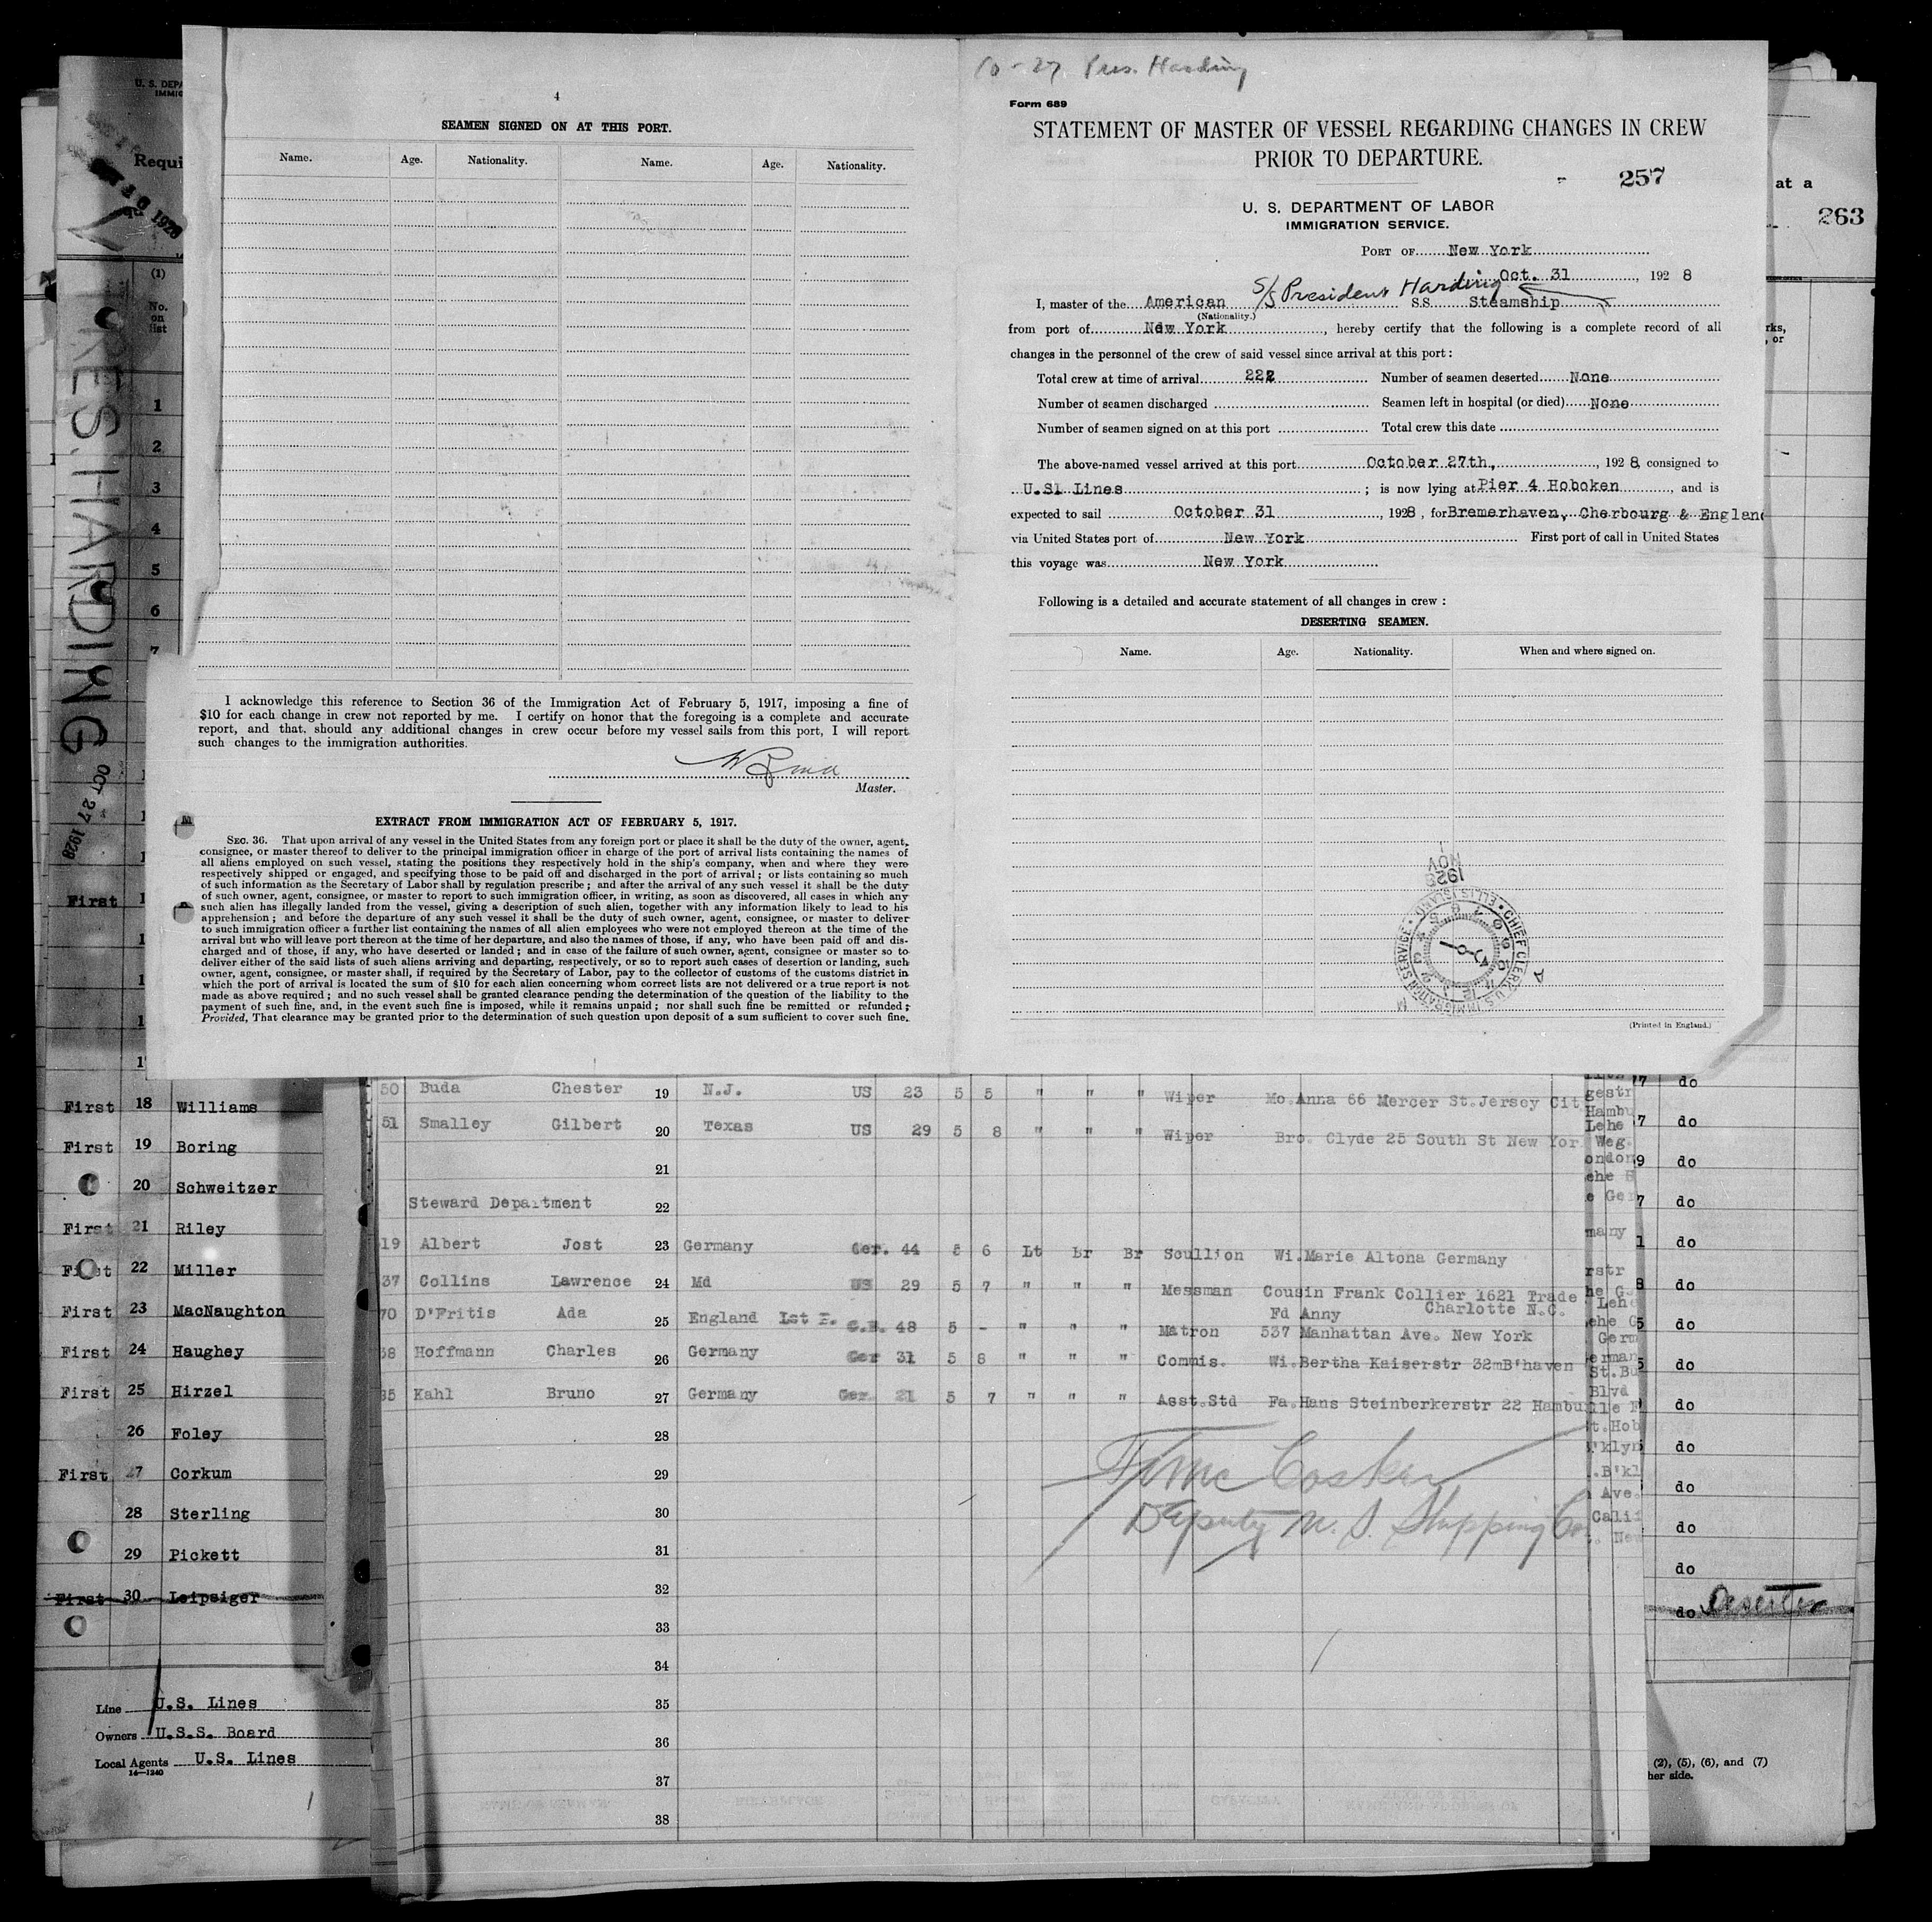 4
SEAMEN SIGNED ON AT THIS PORT.
Name. Age. Nationality. Name. Age. Nationality.
I acknowledge this reference to Section 36 of the Immigration Act of February 5, 1917, imposing a fine of
$10 for each change in crew not reported by me. I certify on honor that the foregoing is a complete and accurate
report, and that, should any additional changes in crew occur before my vessel sails from this port, I will report
such changes to the immigration authorities.
Master.
EXTRACT FROM IMMIGRATION ACT OF FEBRUARY 5, 1917.
SEC. 36. That upon arrival of any vessel in the United States from any foreign port or place it shall be the duty of the owner, agent,
consignee, or master thereof to deliver to the principal immigration officer in charge of the port of arrival lists containing the names of
all aliens employed on such vessel, stating the positions they respectively hold in the ship's company, when and where they were
respectively shipped or engaged, and specifying those to be paid off and discharged in the port of arrival; or lists containing so much
of such information as the Secretary of Labor shall by regulation prescribe; and after the arrival of any such vessel it shall be the duty
of such owner, agent, consignee, or master to report to such immigration officer, in writing, as soon as discovered, all cases in which any
such alien has illegally landed from the vessel, giving a description of such alien, together with any information likely to lead to his
apprehension; and before the departure of any such vessel it shall be the duty of such owner, agent, consignee, or master to deliver
to such immigration officer a further list containing the names of all alien employees who were not employed thereon at the time of the
arrival but who will leave port thereon at the time of her departure, and also the names of those, if any, who have been paid off and dis-
charged and of those, if any, who have deserted or landed; and in case of the failure of such owner, agent, consignee or master so to
deliver either of the said lists of such aliens arriving and departing, respectively, or so to report such cases of desertion or landing, such
owner, agent, consignee, or master shall, if required by the Secretary of Labor, pay to the collector of customs of the customs district in
which the port of arrival is located the sum of $10 for each alien concerning whom correct lists are not delivered or a true report is not
made as above required; and no such vessel shall be granted clearance pending the determination of the question of the liability to the
payment of such fine, and, in the event such fine is imposed, while it remains unpaid; nor shall such fine be remitted or refunded;
Provided, That clearance may be granted prior to the determination of such question upon deposit of a sum sufficient to cover such fine.
10-27 Pres. Harding
Form 689
STATEMENT OF MASTER OF VESSEL REGARDING CHANGES IN CREW
PRIOR TO DEPARTURE.
257
U. S. DEPARTMENT OF LABOR
IMMIGRATION SERVICE.
PORT OF New York
Oct. 31, 192 8
I, master of the American S/S President Harding S.S. Steamship
(Nationality.)
from port of New York, hereby certify that the following is a complete record of all
changes in the personnel of the crew of said vessel since arrival at this port:
Total crew at time of arrival 222 Number of seamen deserted None
Number of seamen discharged Seamen left in hospital (or died) None
Number of seamen signed on at this port Total crew this date
The above-named vessel arrived at this port October 27th, , 192 8, consigned to
U.Sl Lines ; is now lying at Pier 4 Hoboken, and is
expected to sail October 31, 1928, for Bremerhaven, Cherbourg & England
via United States port of New York First port of call in United States
this voyage was New York
Following is a detailed and accurate statement of all changes in crew:
DESERTING SEAMEN.
Name. Age. Nationality. When and where signed on.
1928
NOV
1
CHIEF CLERK U.S. IMMIGRATION SERVICE • ELLIS ISLAND •
(Printed in England.)
U. S. DEPA
IMMIG
Requi
1928
(1)
No.
on
list
PRES. HARDING
OCT 27 1928
1
2
3
4
5
6
7
First
at a
263
rks,
, or
First 18 Williams
First 19 Boring
20 Schweitzer
First 21 Riley
First 22 Miller
First 23 MacNaughton
First 24 Haughey
First 25 Hirzel
26 Foley
First 27 Corkum
28 Sterling
29 Pickett
First 30 Leipsiger
Line U.S. Lines
Owners U.S.S. Board
Local Agents U.S. Lines
14—1240
50 Buda Chester 19 N.J. US 23 5 5 " " " Wiper Mo.Anna 66 Mercer St.Jersey Cit
51 Smalley Gilbert 20 Texas US 29 5 8 " " " Wiper Bro. Clyde 25 South St New Yor
21
Steward Department 22
19 Albert Jost 23 Germany Ger. 44 5 6 Lt Br Br Scullion Wi.Marie Altona Germany
37 Collins Lawrence 24 Md US 29 5 7 " " " Messman Cousin Frank Collier 1621 Trade
Charlotte N.C.
70 D'Fritis Ada 25 England 1st P. G.B. 48 5 - " " " Matron Fd Anny
537 Manhattan Ave. New York
38 Hoffmann Charles 26 Germany Ger 31 5 8 " " " Commis. Wi.Bertha Kaiserstr 32mB'haven
35 Kahl Bruno 27 Germany Ger. 21 5 7 " " " Asst.Std Fa.Hans Steinberkerstr 22 Hambu
28
29
30
31
32
33
34
35
36
37
38
Deputy U. S. Shipping Co
gestr
Hambu
Lehe
Weg.
ondon
many
rstr
Lehe
Germ
erman
St.Bu
Blvd
t.Hob
'klyn
.B'kl
Ave.
Calif
New
7 do
7 do
9 do
7 do
1 do
8 do
5 do
5 do
do
do
do
do
do
do Deserter
(2), (5), (6), and (7)
her side.